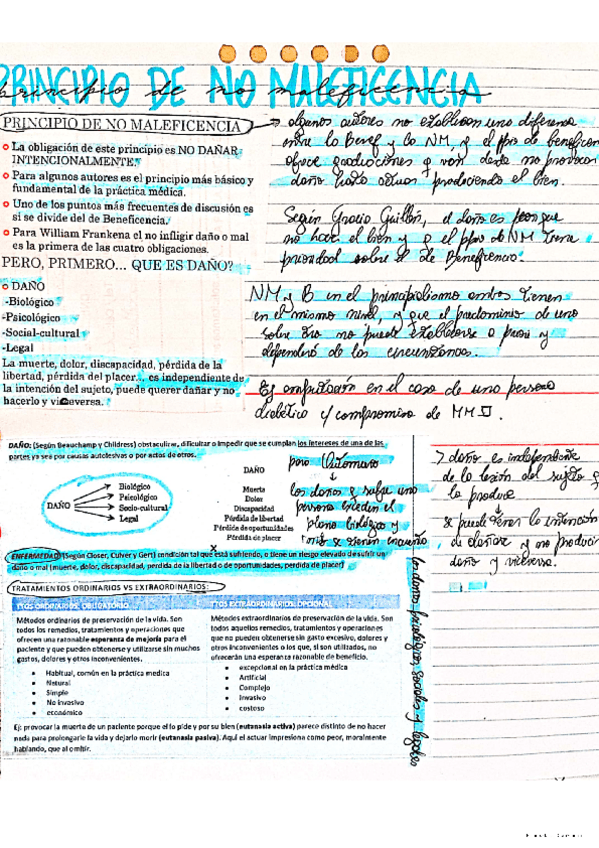 PRINCIPIO DE NO MALEFICENCIA
principio de no maleficencia
PRINCIPIO DE NO MALEFICENCIA
La obligación de este principio es NO DAÑAR
INTENCIONALMENTE.
Para algunos autores es el principio más básico y
fundamental de la práctica médica.
Uno de los puntos más frecuentes de discusión es
si se divide del de Beneficencia.
Para William Frankena el no infligir daño o mal
es la primera de las cuatro obligaciones.
PERO, PRIMERO... QUE ES DAÑO?
DAÑO
-Biológico
-Psicológico
-Social-cultural
-Legal
La muerte, dolor, discapacidad, pérdida de la
libertad, pérdida del placer... es independiente de
la intención del sujeto, puede querer dañar y no
hacerlo y viceversa.
algunos autores no establecen una diferencia
entre la Benef y la NM, y el ppio de beneficencia
daño hasta actuar produciendo el bien.
Según Gracia Guillén, el daño es peor que
no hacer el bien y q el ppio de NM tiene
prioridad sobre el de Beneficencia.
NM y B en el principialismo ambos tienen
en el mismo nivel, y que el predominio de uno
sobre otro no puede establecerse a priori y
dependerá de las circunstancias.
Ej amputación en el caso de una persona
diabética c/ compromiso de MMII.
DAÑO: (Según Beauchamp y Childress) obstaculizar, dificultar o impedir que se cumplan los intereses de una de las
partes ya sea por causas autolesivas o por actos de otros.
DAÑO
Biológico
Psicológico
Socio-cultural
Legal
DAÑO
Muerte
Dolor
Discapacidad
Pérdida de libertad
Pérdida de oportunidades
Pérdida de placer
los daños q sufre una
persona exceden el
plano biológico y
tmb se tienen en cuenta
los daños psicológicos sociales y legales
daño es independiente
de la
la produce
se puede tener la intención
de dañar y no producir
daño y viceversa.
ENFERMEDAD: (Según Closer, Culver y Gert) condición tal que está sufriendo, o tiene un riesgo elevado de sufrir un
daño o mal (muerte, dolor, discapacidad, perdida de la libertad o de oportunidades, perdida de placer)
TRATAMIENTOS ORDINARIOS VS EXTRAORDINARIOS:
TTOS ORDINARIOS: OBLIGATORIO
Métodos ordinarios de preservación de la vida. Son
todos los remedios, tratamientos y operaciones que
ofrecen una razonable esperanza de mejoría para el
paciente y que pueden obtenerse y utilizarse sin muchos
gastos, dolores y otros inconvenientes.
Habitual, común en la práctica medica
Natural
Simple
No invasivo
económico
TTOS EXTRAORDINARIOS: OPCIONAL
Métodos extraordinarios de preservación de la vida. Son
todos aquellos remedios, tratamientos y operaciones
que no pueden obtenerse sin gasto excesivo, dolores y
otros inconvenientes o los que, si son utilizados, no
ofrecerán una esperanza razonable de beneficio.
excepcional en la práctica médica
Artificial
Complejo
Invasivo
costoso
Ej: provocar la muerte de un paciente porque el lo pide y por su bien (eutanasia activa) parece distinto de no hacer
nada para prolongarle la vida y dejarlo morir (eutanasia pasiva). Aquí el actuar impresiona como peor, moralmente
hablando, que al omitir.